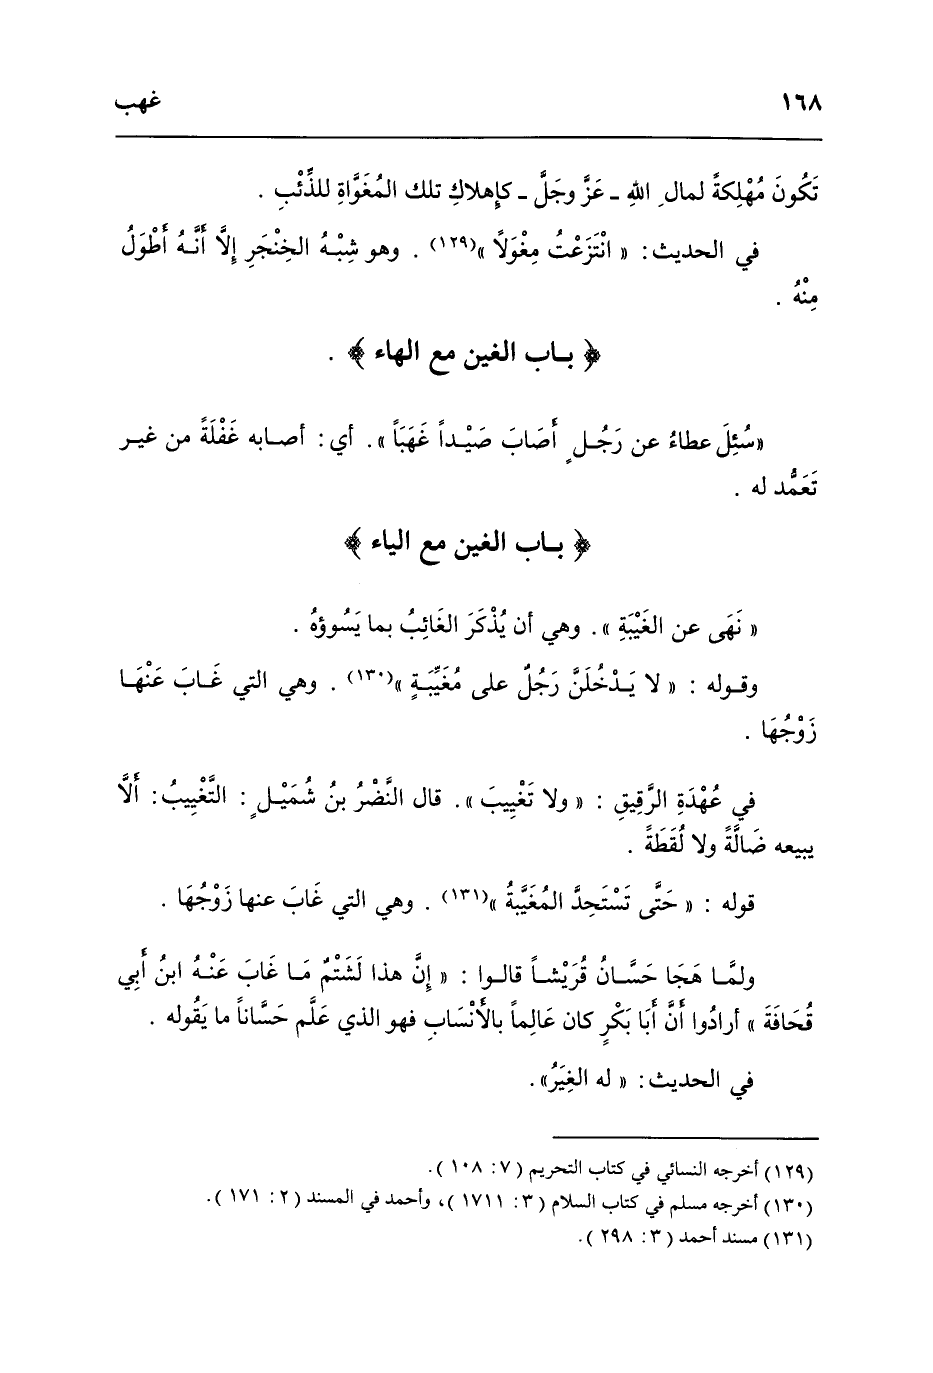 ١٦٨ غهب
تَكُونَ مُهْلِكةً لمالِ اللهِ ـ عَزَّ وجَلَّ ـ كإهلاكِ تلك المُغَوَّاةِ للذِّئْبِ .
في الحديث : « انْتَزَعْتُ مِغْوَلًا »(١٢٩) . وهو شِبْهُ الخِنْجَرِ إلَّا أَنَّهُ أَطْوَلُ
مِنْهُ .
﴿ باب الغين مع الهاء ﴾ .
«سُئِلَ عطاءُ عن رَجُلٍ أَصَابَ صَيْداً غَهَبَاً ». أي : أصابه غَفْلَةً من غير
تَعَمُّد له .
﴿ باب الغين مع الياء ﴾
« نَهَى عن الغَيْبَةِ ». وهي أن يُذْكَرَ الغَائِبُ بما يَسُوؤهُ .
وقوله : « لا يَدْخُلَنَّ رَجُلٌ على مُغَيِّبَةٍ »(١٣٠) . وهي التي غَابَ عَنْهَا
زَوْجُهَا .
في عُهْدَةِ الرَّقِيقِ : « ولا تَغْيِيبَ ». قال النَّضْرُ بنُ شُمَيْلٍ : التَّغْيِيبُ : أَلَّا
يبيعه ضَالَّةً ولا لُقَطَةً .
قوله : « حَتَّى تَسْتَحِدَّ المُغَيَّبةُ »(١٣١) . وهي التي غَابَ عنها زَوْجُهَا .
ولمَّا هَجَا حَسَّانُ قُرَيْشاً قالوا : « إنَّ هذا لَشَتْمٌ مَا غَابَ عَنْهُ ابنُ أَبي
قُحَافَةَ » أرادُوا أَنَّ أَبَا بَكْرٍ كان عَالِماً بالأَنْسَابِ فهو الذي عَلَّم حَسَّاناً ما يَقُوله .
في الحديث : « له الغِيَرُ».
(١٢٩) أخرجه النسائي في كتاب التحريم ( ٧ : ١٠٨ ).
(١٣٠) أخرجه مسلم في كتاب السلام ( ٣ : ١٧١١ )، وأحمد في المسند ( ٢ : ١٧١ ).
(١٣١) مسند أحمد ( ٣ : ٢٩٨ ).